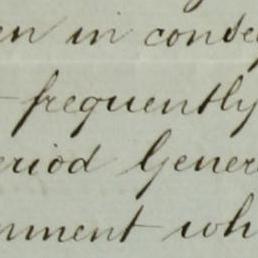 en in conse
frequently
eriod Gener
nment wh